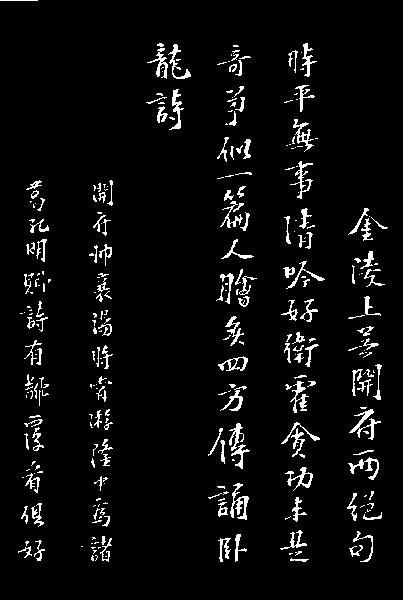 金陵上吴開府两絕句
時平無事清吟好衛霍貪功未是
奇爭似一篇人膾炙四方傳誦卧
龍詩
開府帅襄陽時嘗游隆中爲諸
葛孔明賦詩有翻覆看俱好